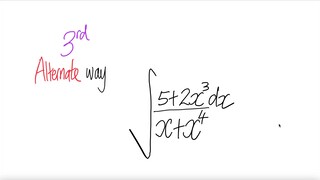 3rd
Alternate way
√(5+2x³dx
x+x⁴